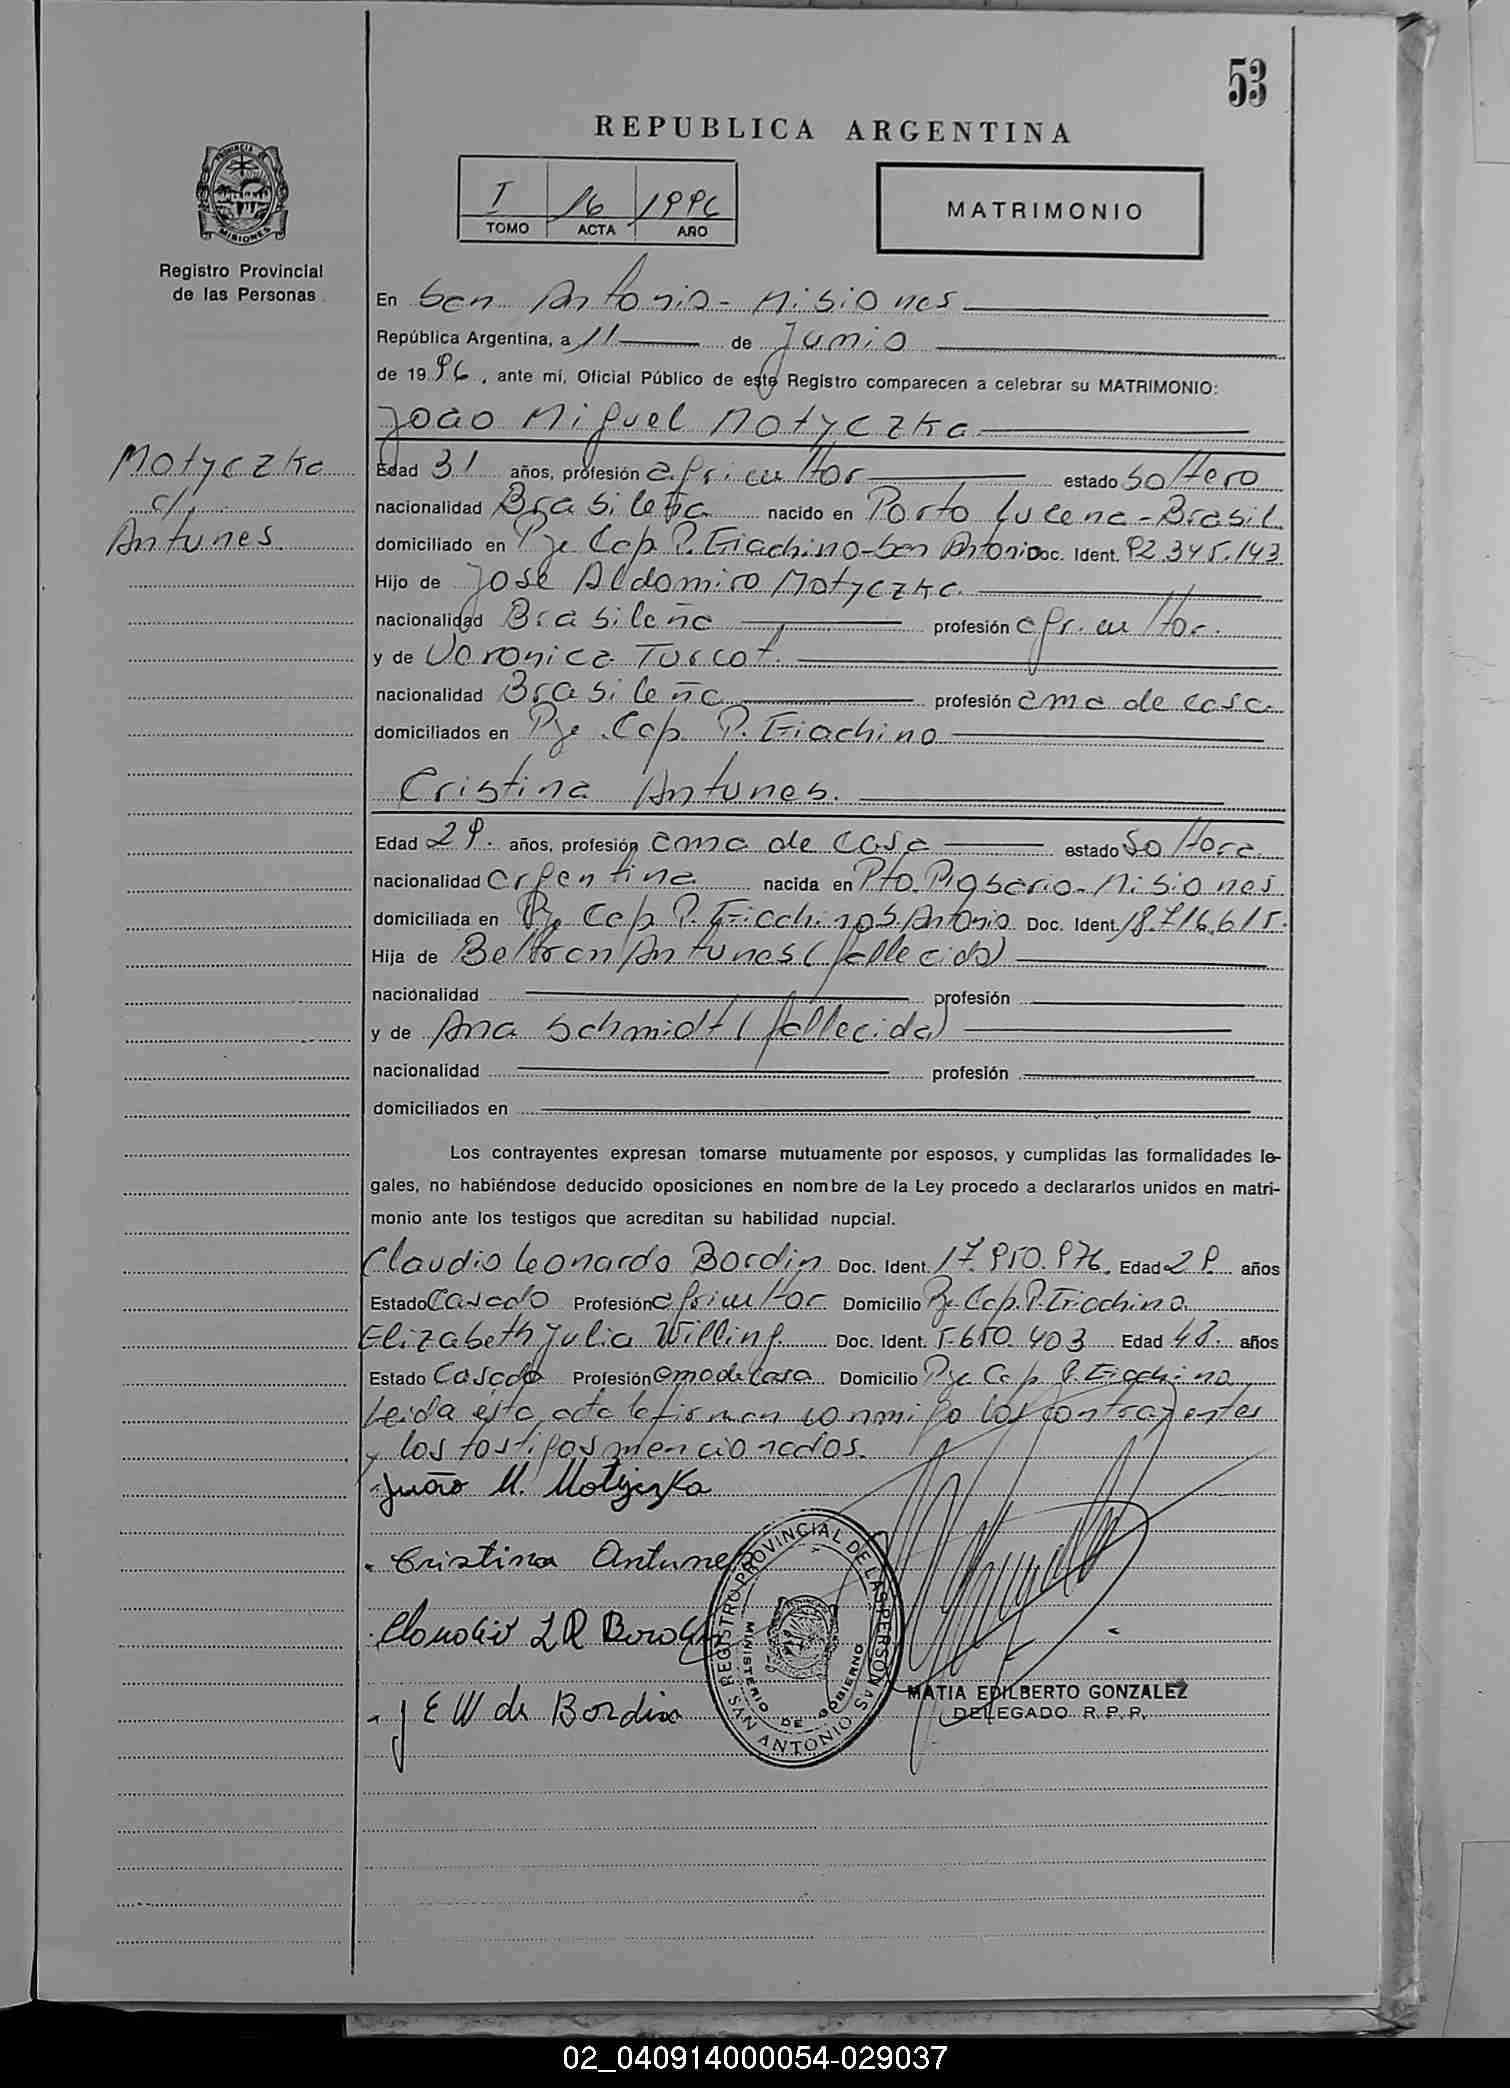 53
REPUBLICA ARGENTINA
I 16 1996
TOMO ACTA AÑO
MATRIMONIO
PROVINCIA DE MISIONES
Registro Provincial
de las Personas
En San Antonio - Misiones
República Argentina, a 11 de Junio
de 1996, ante mí, Oficial Público de este Registro comparecen a celebrar su MATRIMONIO:
Joao Miguel Motyczka
Motyczka
c/
Antunes
Edad 31 años, profesión agricultor estado Soltero
nacionalidad Brasileña nacido en Porto Lucena - Brasil
domiciliado en Pje Cap. P. Giachino - San Antonio Doc. Ident. 92.345.143
Hijo de José Aldomiro Motyczka
nacionalidad Brasileña profesión agricultor.
y de Veronica Turcot.
nacionalidad Brasileña profesión ama de casa
domiciliados en Pje Cap P. Giachino
Cristina Antunes.
Edad 29. años, profesión ama de casa estado Soltera
nacionalidad argentina nacida en Pto. Rosario - Misiones
domiciliada en Pje Cap P. Giachino S. Antonio Doc. Ident. 18.716.615.
Hija de Beltran Antunes (fallecido)
nacionalidad profesión
y de Ana Schmidt (fallecida)
nacionalidad profesión
domiciliados en
Los contrayentes expresan tomarse mutuamente por esposos, y cumplidas las formalidades le-
gales, no habiéndose deducido oposiciones en nombre de la Ley procedo a declararlos unidos en matri-
monio ante los testigos que acreditan su habilidad nupcial.
Claudio Leonardo Bordin Doc. Ident. 17.950.976. Edad 29. años
Estado Casado Profesión agricultor Domicilio Pje. Cap. P. Giachino
Elizabeth Julia Willing Doc. Ident. 5.650.403 Edad 48. años
Estado Casada Profesión ama de casa Domicilio Pje Cap P. Giachino
Leida esta acta la firman conmigo los contrayentes
y los testigos mencionados.
Juão M. Motyczka
Cristina Antunes
Claudio L R Bordin
J E W de Bordin
REGISTRO PROVINCIAL DE LAS PERSONAS
MINISTERIO DE GOBIERNO
SAN ANTONIO
MATIA EDILBERTO GONZALEZ
DELEGADO R.P.P.
02_040914000054-029037